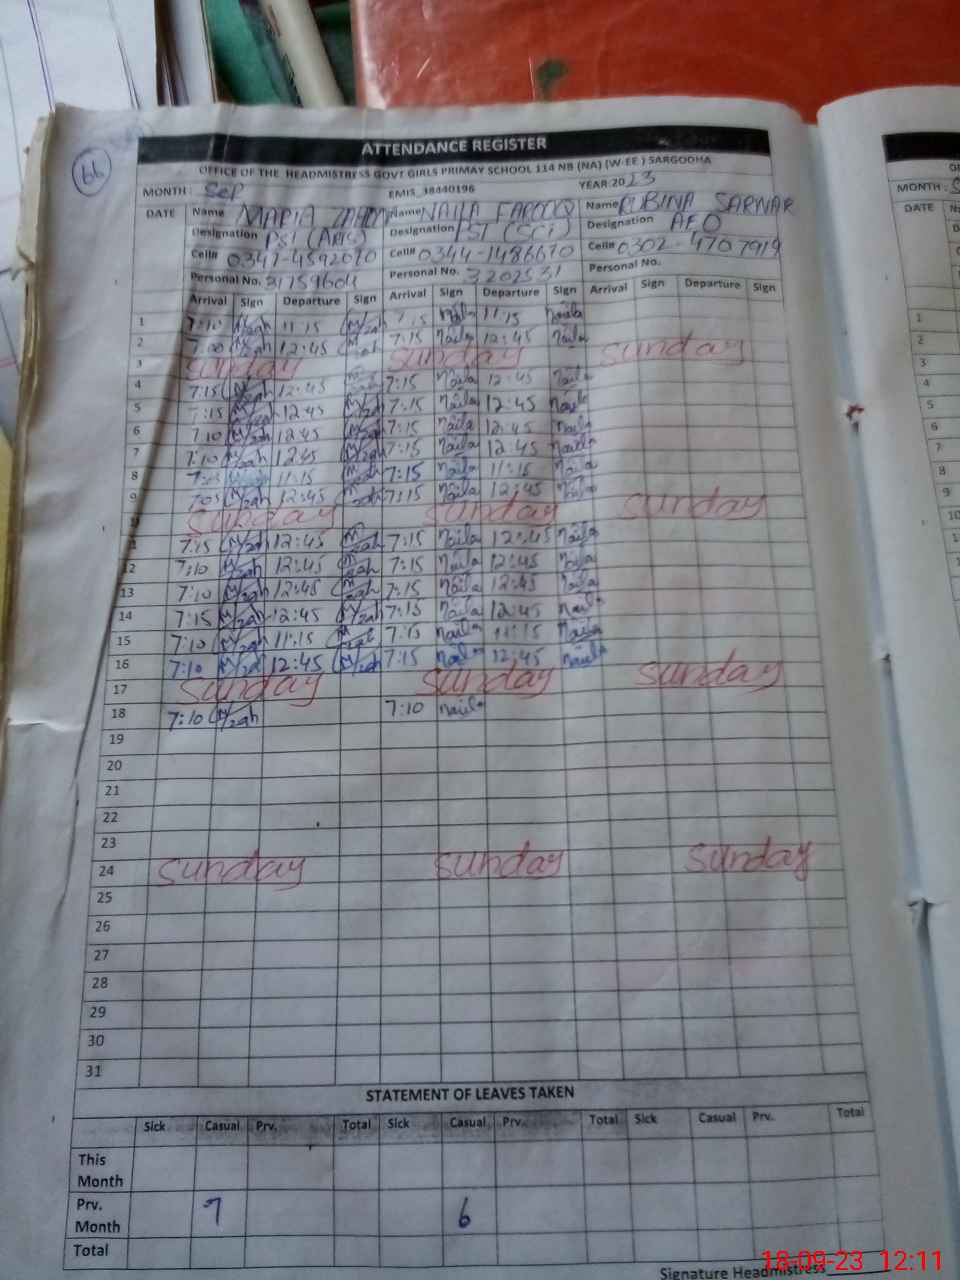 66
ATTENDANCE REGISTER
OFFICE OF THE HEADMISTRESS GOVT GIRLS PRIMAY SCHOOL 114 NB (NA) (W-EE ) SARGODHA
MONTH: Sep EMIS_38440196 YEAR:2023
DATE Name MARIA Name NAILA FAROOQ Name RUBINA SARWAR
Designation PST (ARTS) Designation PST (SCi) Designation AEO
Cell# 0347-4592070 Cell# 0344-1486670 Cell# 0302-4707919
Personal No. 31759604 Personal No. 3202531 Personal No.
Arrival Sign Departure Sign Arrival Sign Departure Sign Arrival Sign Departure Sign
1 7:10 11:15 7:15 Naila 11:15 Naila
2 7:00 12:45 7:15 Naila 12:45 Naila
3 Sunday Sunday Sunday
4 7:15 12:45 7:15 Naila 12:45 Naila
5 7:15 12:45 7:15 Naila 12:45 Naila
6 7:10 12:45 7:15 Naila 12:45 Naila
7 7:10 12:45 7:15 Naila 12:45 Naila
8 11:15 7:15 Naila 11:15 Naila
9 7:05 12:45 7:15 Naila 12:45 Naila
Sunday Sunday Sunday
7:15 12:45 7:15 Naila 12:45 Naila
12 7:10 12:45 7:15 Naila 12:45 Naila
13 7:10 12:45 7:15 Naila 12:45 Naila
14 7:15 12:45 7:15 Naila 12:45 Naila
15 7:10 11:15 7:15 Naila 11:15 Naila
16 7:10 12:45 7:15 Naila 12:45 Naila
17 Sunday Sunday Sunday
18 7:10 7:10 Naila
19
20
21
22
23
24 Sunday Sunday Sunday
25
26
27
28
29
30
31
STATEMENT OF LEAVES TAKEN
Sick Casual Prv. Total Sick Casual Prv. Total Sick Casual Prv. Total
This
Month
Prv.
Month 7 6
Total
Signature Headmistress
18-09-23 12:11
MONTH:
DATE
1
2
3
4
5
6
7
8
9
10
11
12
13
14